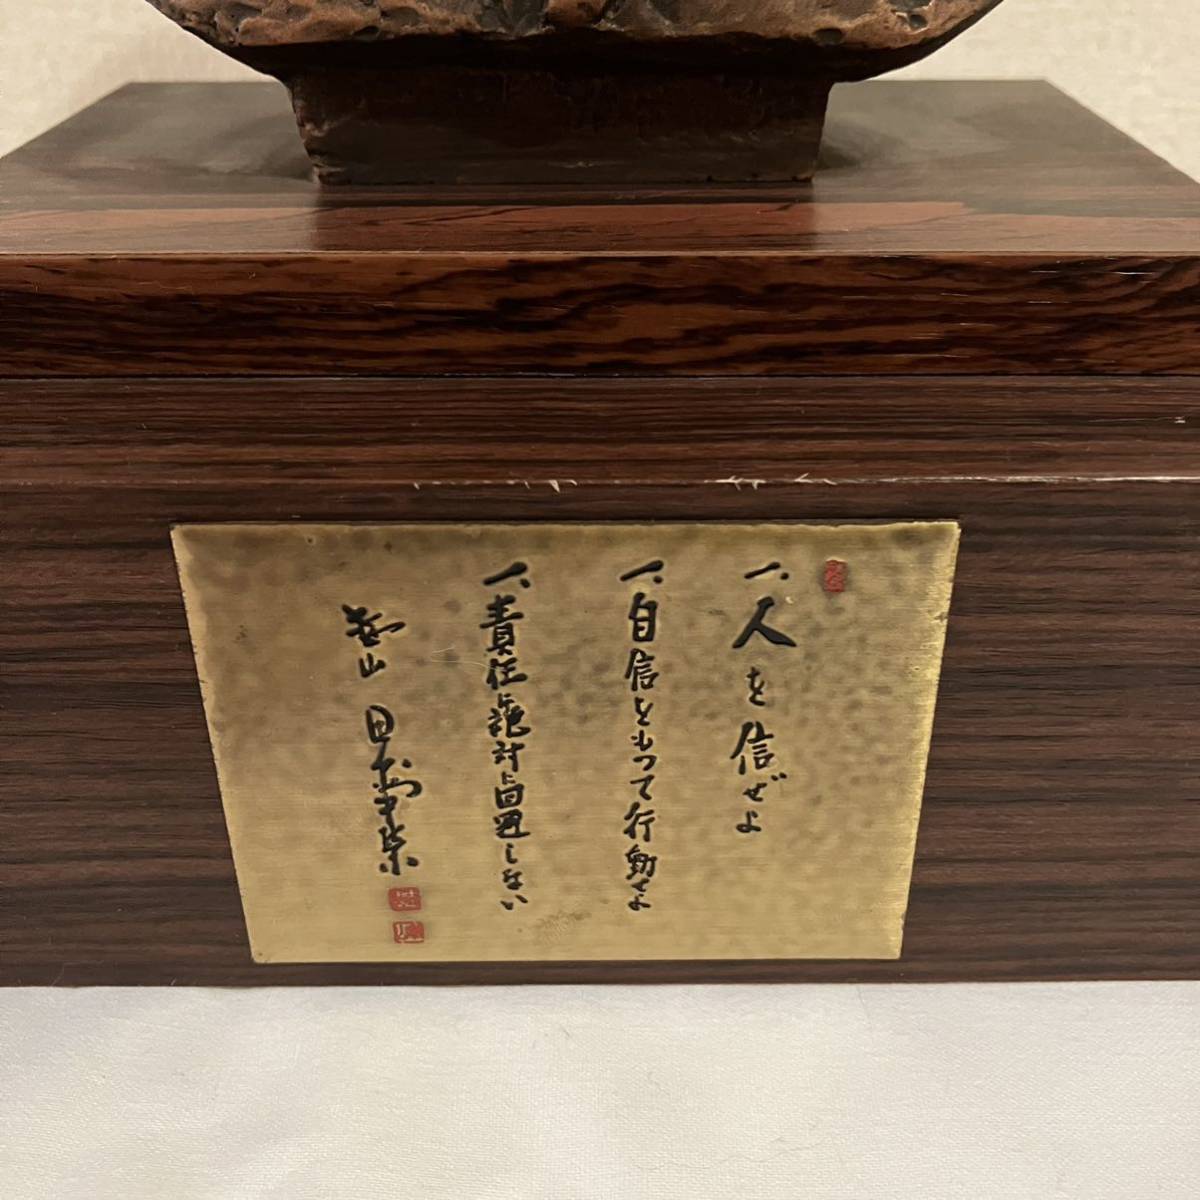 一、人を信ぜよ
一、自信をもって行動せよ
一、責任は絶対に回避しない
山 田